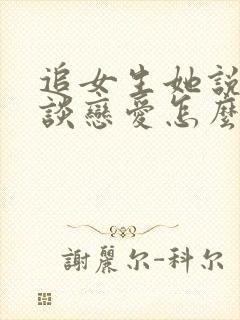 追女生她說
談戀愛怎麼
謝麗尔-科尔